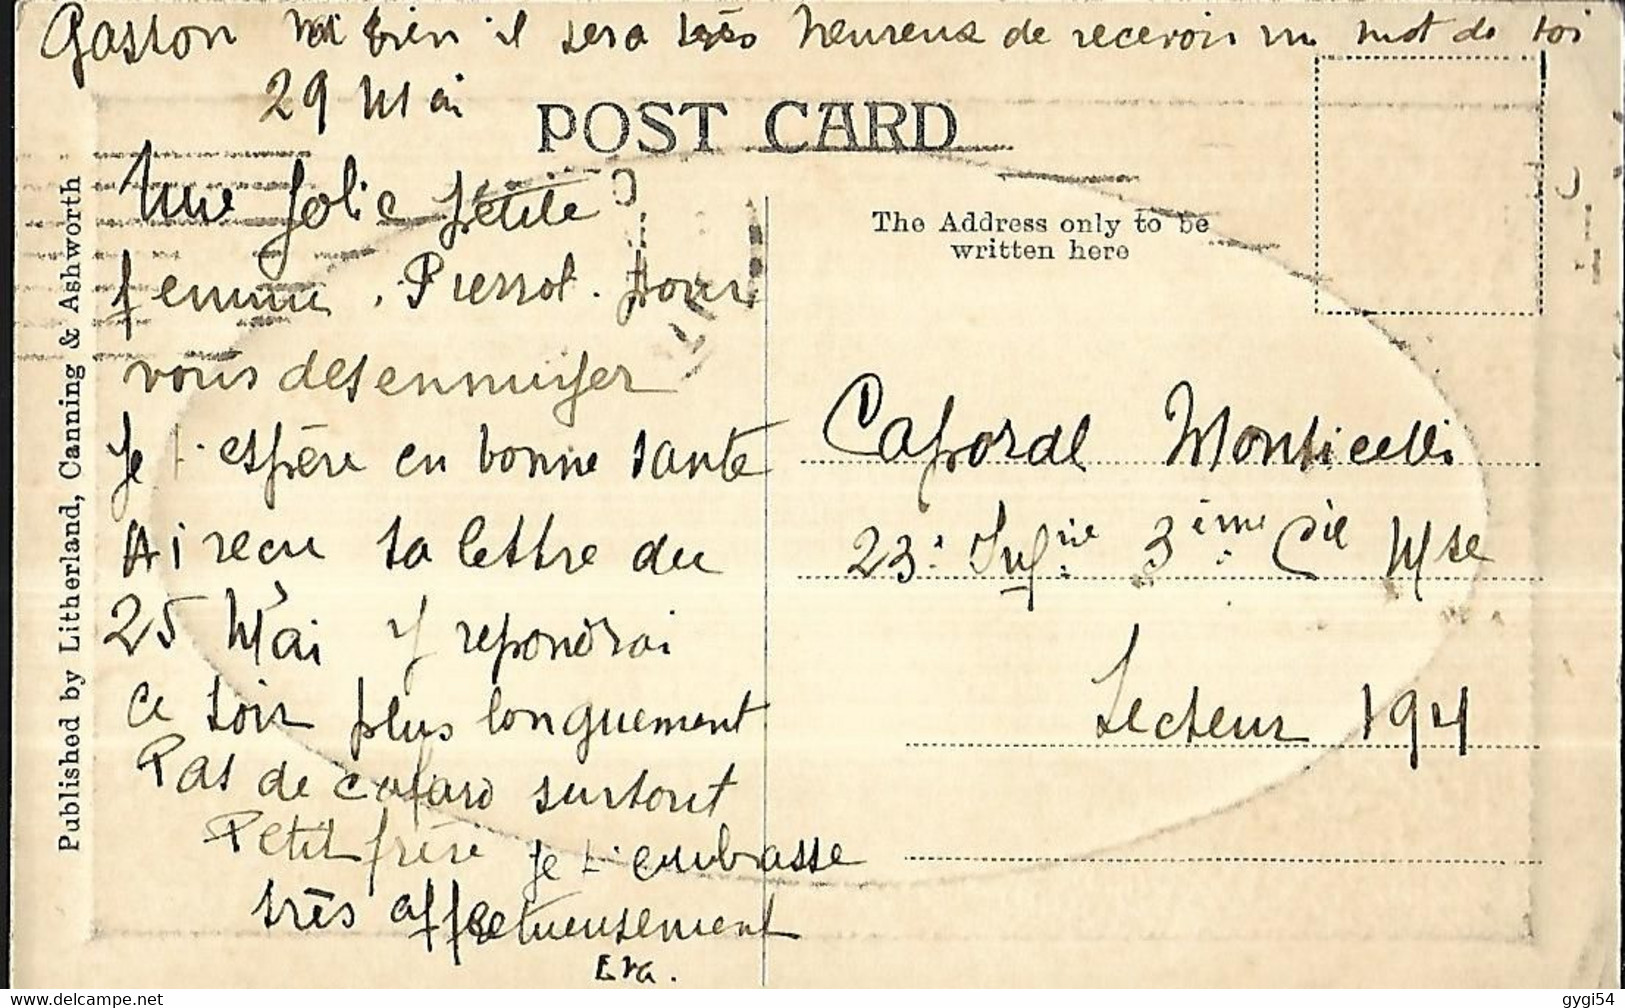 Gaston va bien il sera très heureux de recevoir un mot de toi
29 Mai
POST CARD
Une jolie petite
femme, Pierrot. pour
vous desennuiyer
Je t'espère en bonne santé
Ai recu ta lettre du
25 Mai y repondrai
ce soir plus longuement
Pas de cafard surtout
Petit frère je t'embrasse
très affectueusement
Eva.
The Address only to be
written here
Caporal Monticelli
23e Infrie 3ième Cie Mse
Secteur 194
Published by Litherland, Canning & Ashworth
gygi54